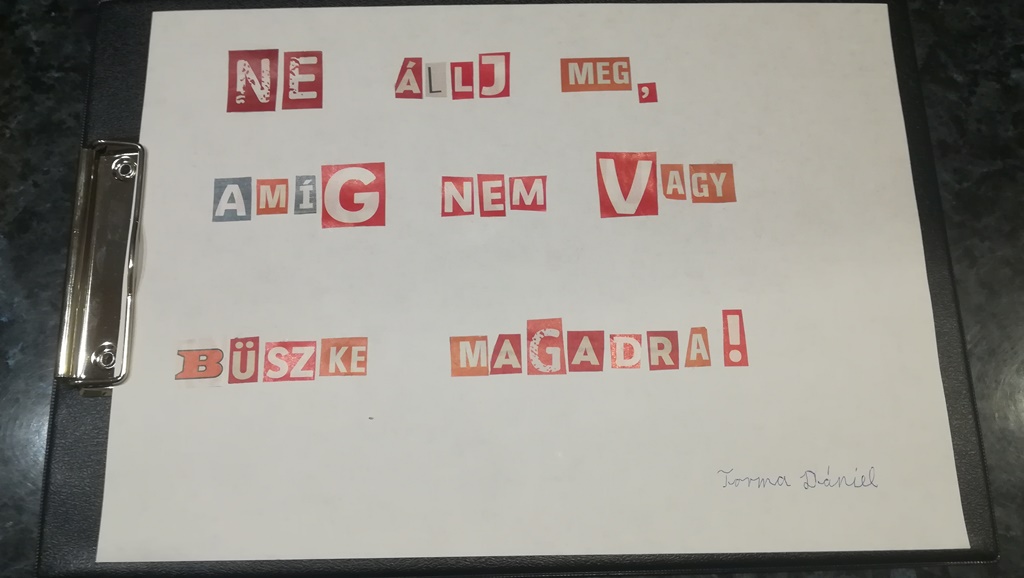 NE ÁLLJ MEG,
AMÍG NEM VAGY
BÜSZKE MAGADRA!
Torma Dániel